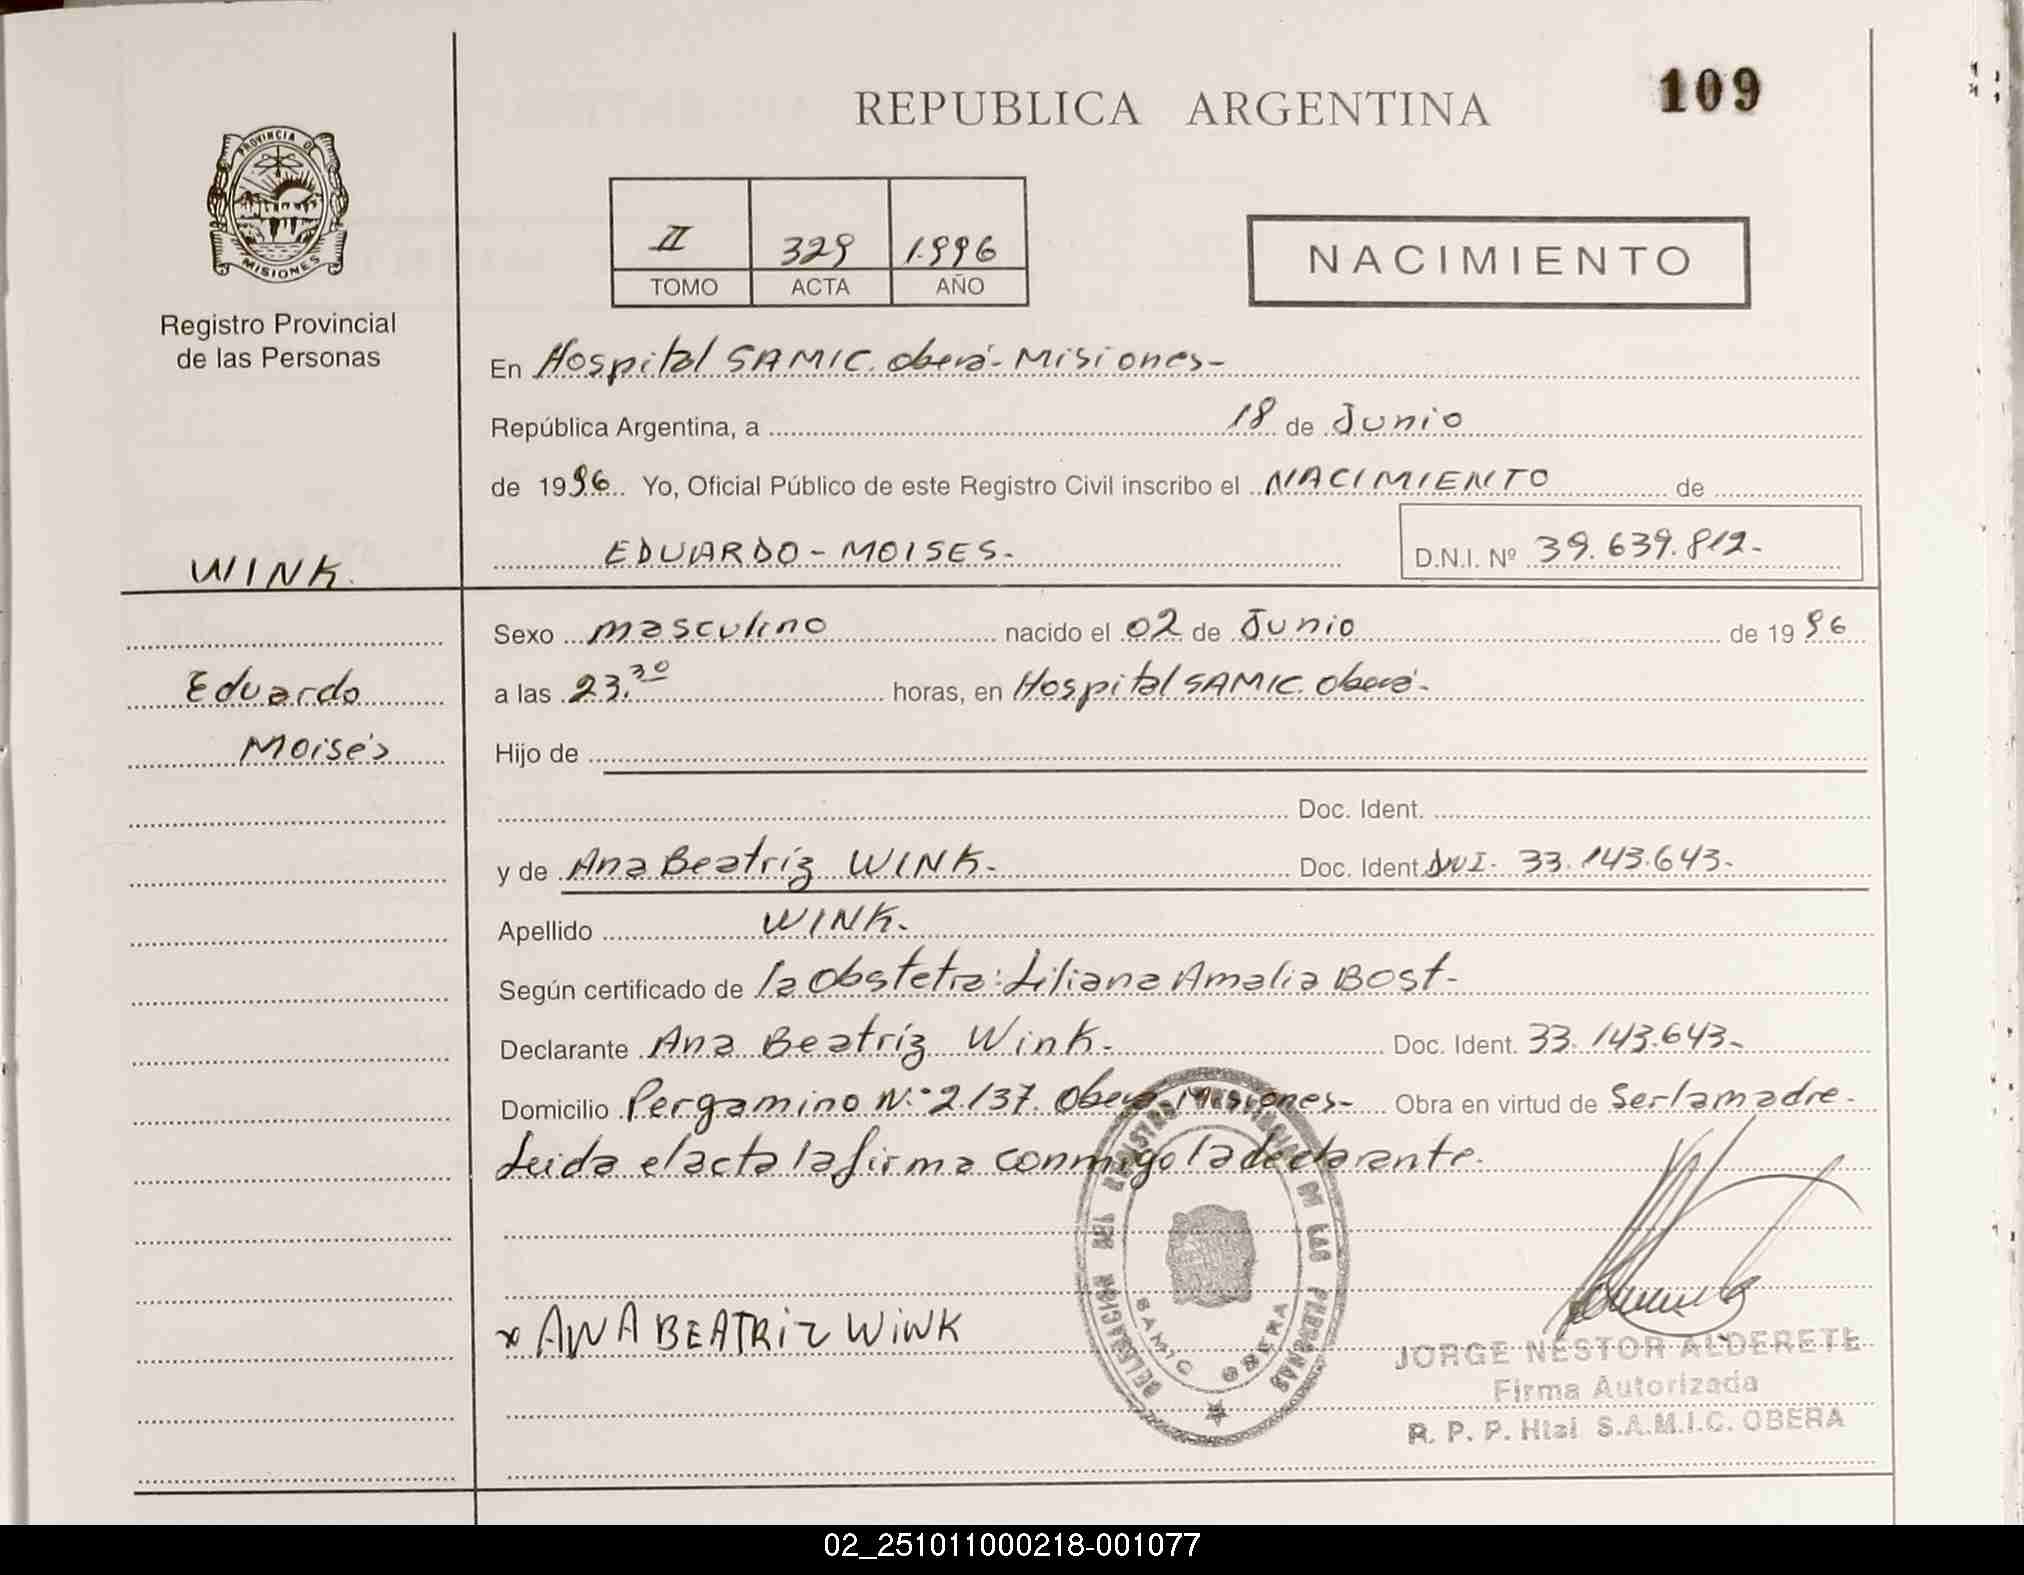 REPUBLICA ARGENTINA
109
PROVINCIA DE
MISIONES
Registro Provincial
de las Personas
II 329 1.996
TOMO ACTA AÑO
NACIMIENTO
En Hospital SAMIC. Oberá - Misiones -
República Argentina, a 18 de Junio
de 1996 Yo, Oficial Público de este Registro Civil inscribo el NACIMIENTO de
EDUARDO - MOISES.
D.N.I. Nº 39.639.812.-
WINK.
Eduardo
Moisés
Sexo masculino nacido el 02 de Junio de 1996
a las 23.30 horas, en Hospital SAMIC. Oberá -
Hijo de
Doc. Ident.
y de Ana Beatríz WINK. Doc. Ident. DNI. 33.143.643.-
Apellido WINK.
Según certificado de la Obstetra: Liliana Amalia BOST -
Declarante Ana Beatríz Wink. Doc. Ident. 33.143.643.-
Domicilio Pergamino N.º 2.137. Oberá - Misiones - Obra en virtud de Ser la madre.
Leida el acta la firma conmigo la declarante.
DELEGACION DEL REGISTRO PROVINCIAL DE LAS PERSONAS
SAMIC OBERA
x ANA BEATRiz WiNK
JORGE NESTOR ALDERETE
Firma Autorizada
R. P. P. Htal S.A.M.I.C. OBERA
02_251011000218-001077